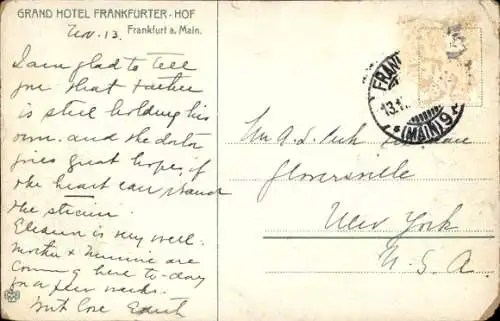 GRAND HOTEL FRANKFURTER-HOF
Frankfurt a. Main.
Nov. 13.
I am glad to tell
you that father
is still holding his
own. and the doctor
gives great hopes if
the heart can stand
the strain.
is very well.
Mother & are
coming here to-day
for a few weeks.
With love Edith
FRANK
13.11
(MAIN) 9
A. S.
Gloversville
New York
U. S. A.